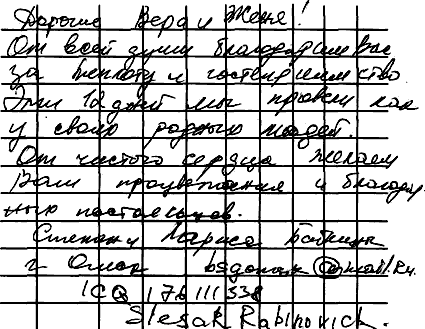 Дорогие Вера и Женя!
От всей души благодарим Вас
за теплоту и гостеприимство
Эти 12 дней мы провели как
у своих родных людей.
От чистого сердца желаем
Вам процветания и благодар
ных постояльцев.
Степан и Лариса
г Омск @mail.ru.
ICQ 176 111 538
Slesar Rabinovich.